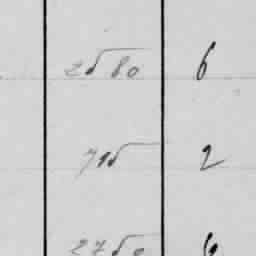 2580 6
715 2
2750 6